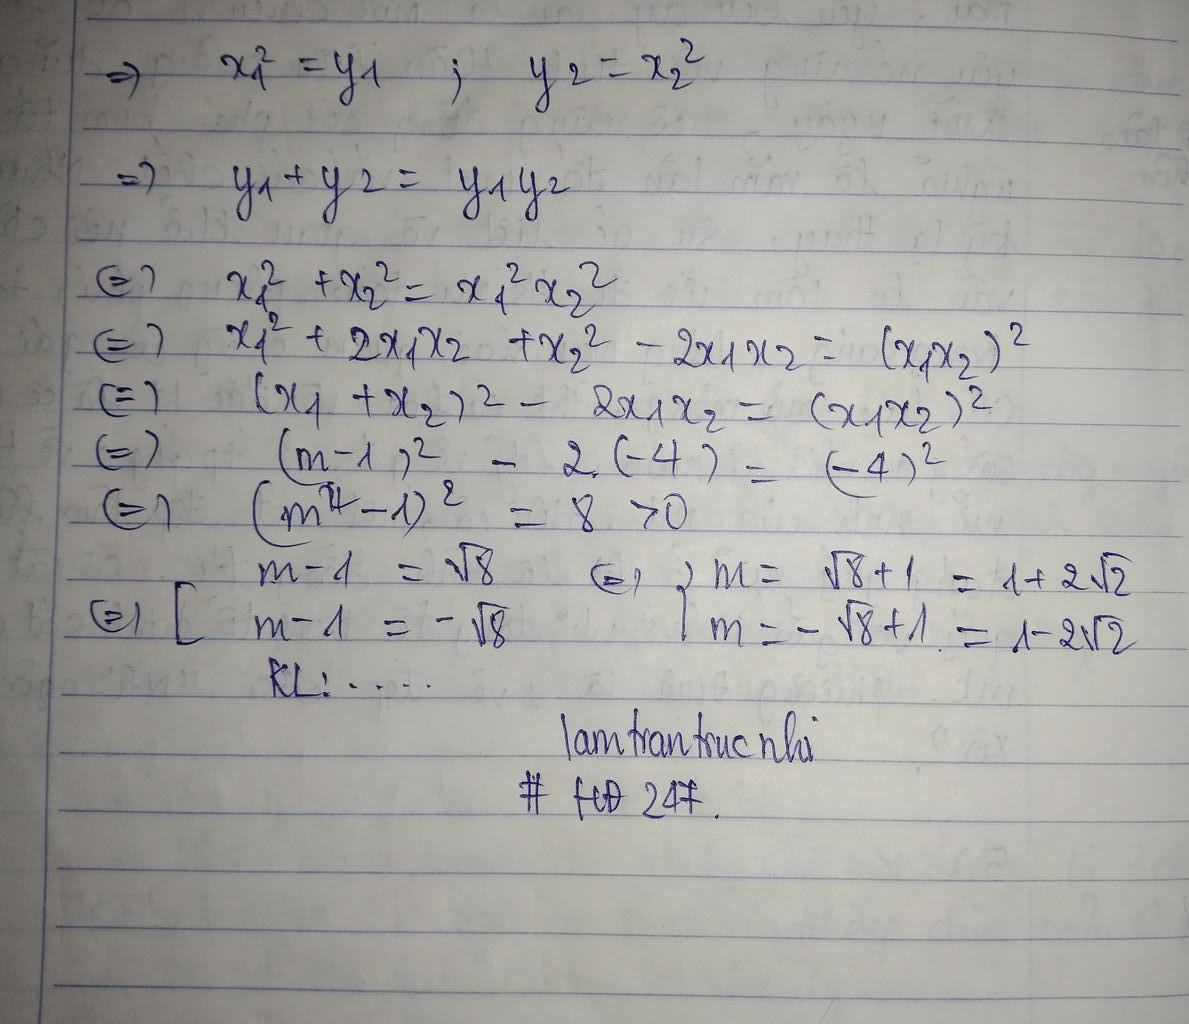 =) x₁² = y1 ; y2 = x₂²
=) y1 + y2 = y1y2
(=) x₁² + x₂² = x₁² x₂²
(=) x₁² + 2x1x2 + x₂² - 2x1x2 = (x1x2)²
(=) (x1 + x2)² - 2x1x2 = (x1x2)²
(=) (m-1)² - 2.(-4) = (-4)²
(=) (m-1)² = 8 >0
(=) [ m-1 = √8 (=) m = √8+1 = 1+2√2
m-1 = -√8 m = -√8+1 = 1-2√2
KL: .....
lamtrantrucnhi
# 247.